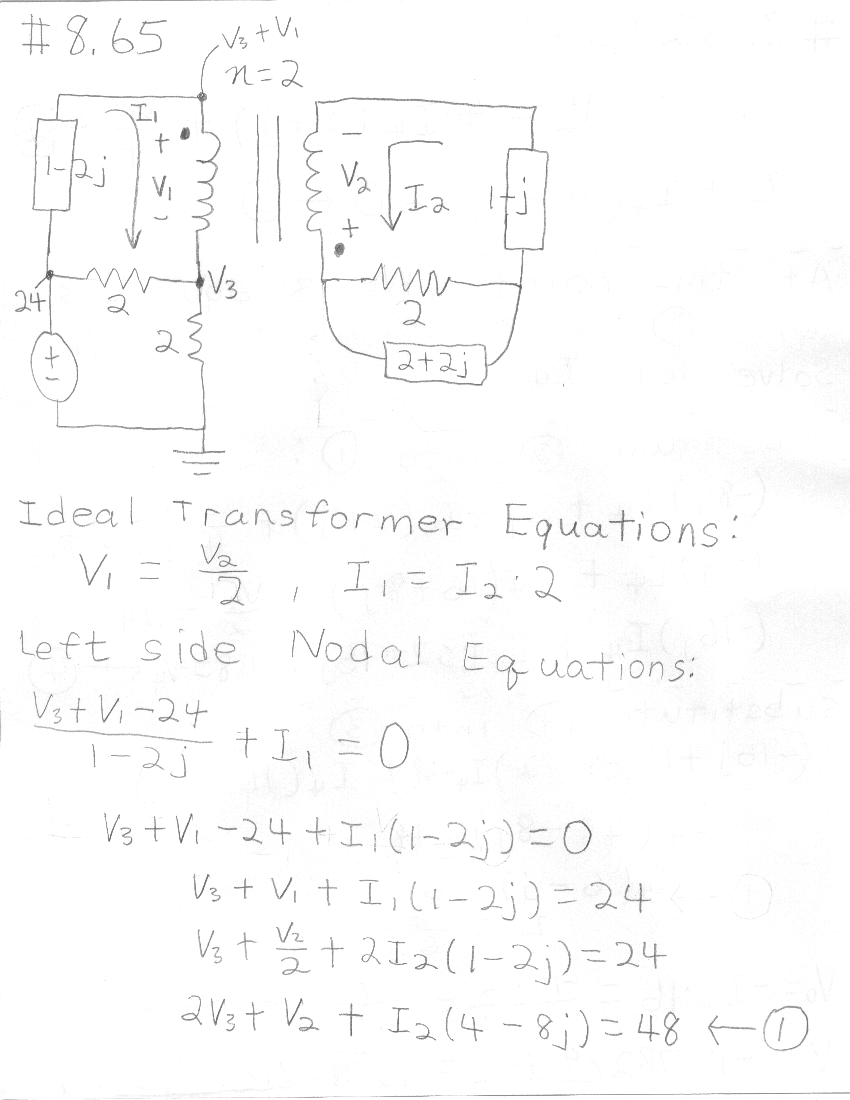 #8.65
V₃+V₁
n=2
I₁
+
1-2j
V₁
-
-
V₂
+
I₂
1-j
24
2
V₃
2
+
-
2
2+2j
Ideal Transformer Equations:
V₁ = V₂/2 , I₁ = I₂·2
Left side Nodal Equations:
(V₃+V₁-24)/(1-2j) + I₁ = 0
V₃+V₁-24+I₁(1-2j)=0
V₃+V₁+I₁(1-2j)=24
V₃+V₂/2+2I₂(1-2j)=24
2V₃+V₂+I₂(4-8j)=48 ←①